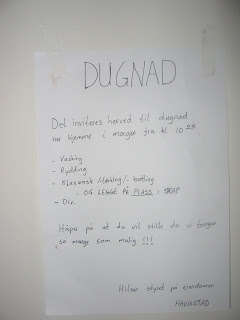 DUGNAD
Det inviteres herved til dugnad
hjemme i morgen fra kl 10 00.
- Vasking
- Rydding
- Klesvask /-
- OG LEGGE PÅ PLASS I SKAP
- Div.
Håper på at du vil stille da vi trenger
så mange som mulig !!!
Hilsen styret på eiendommen
HAUGSTAD